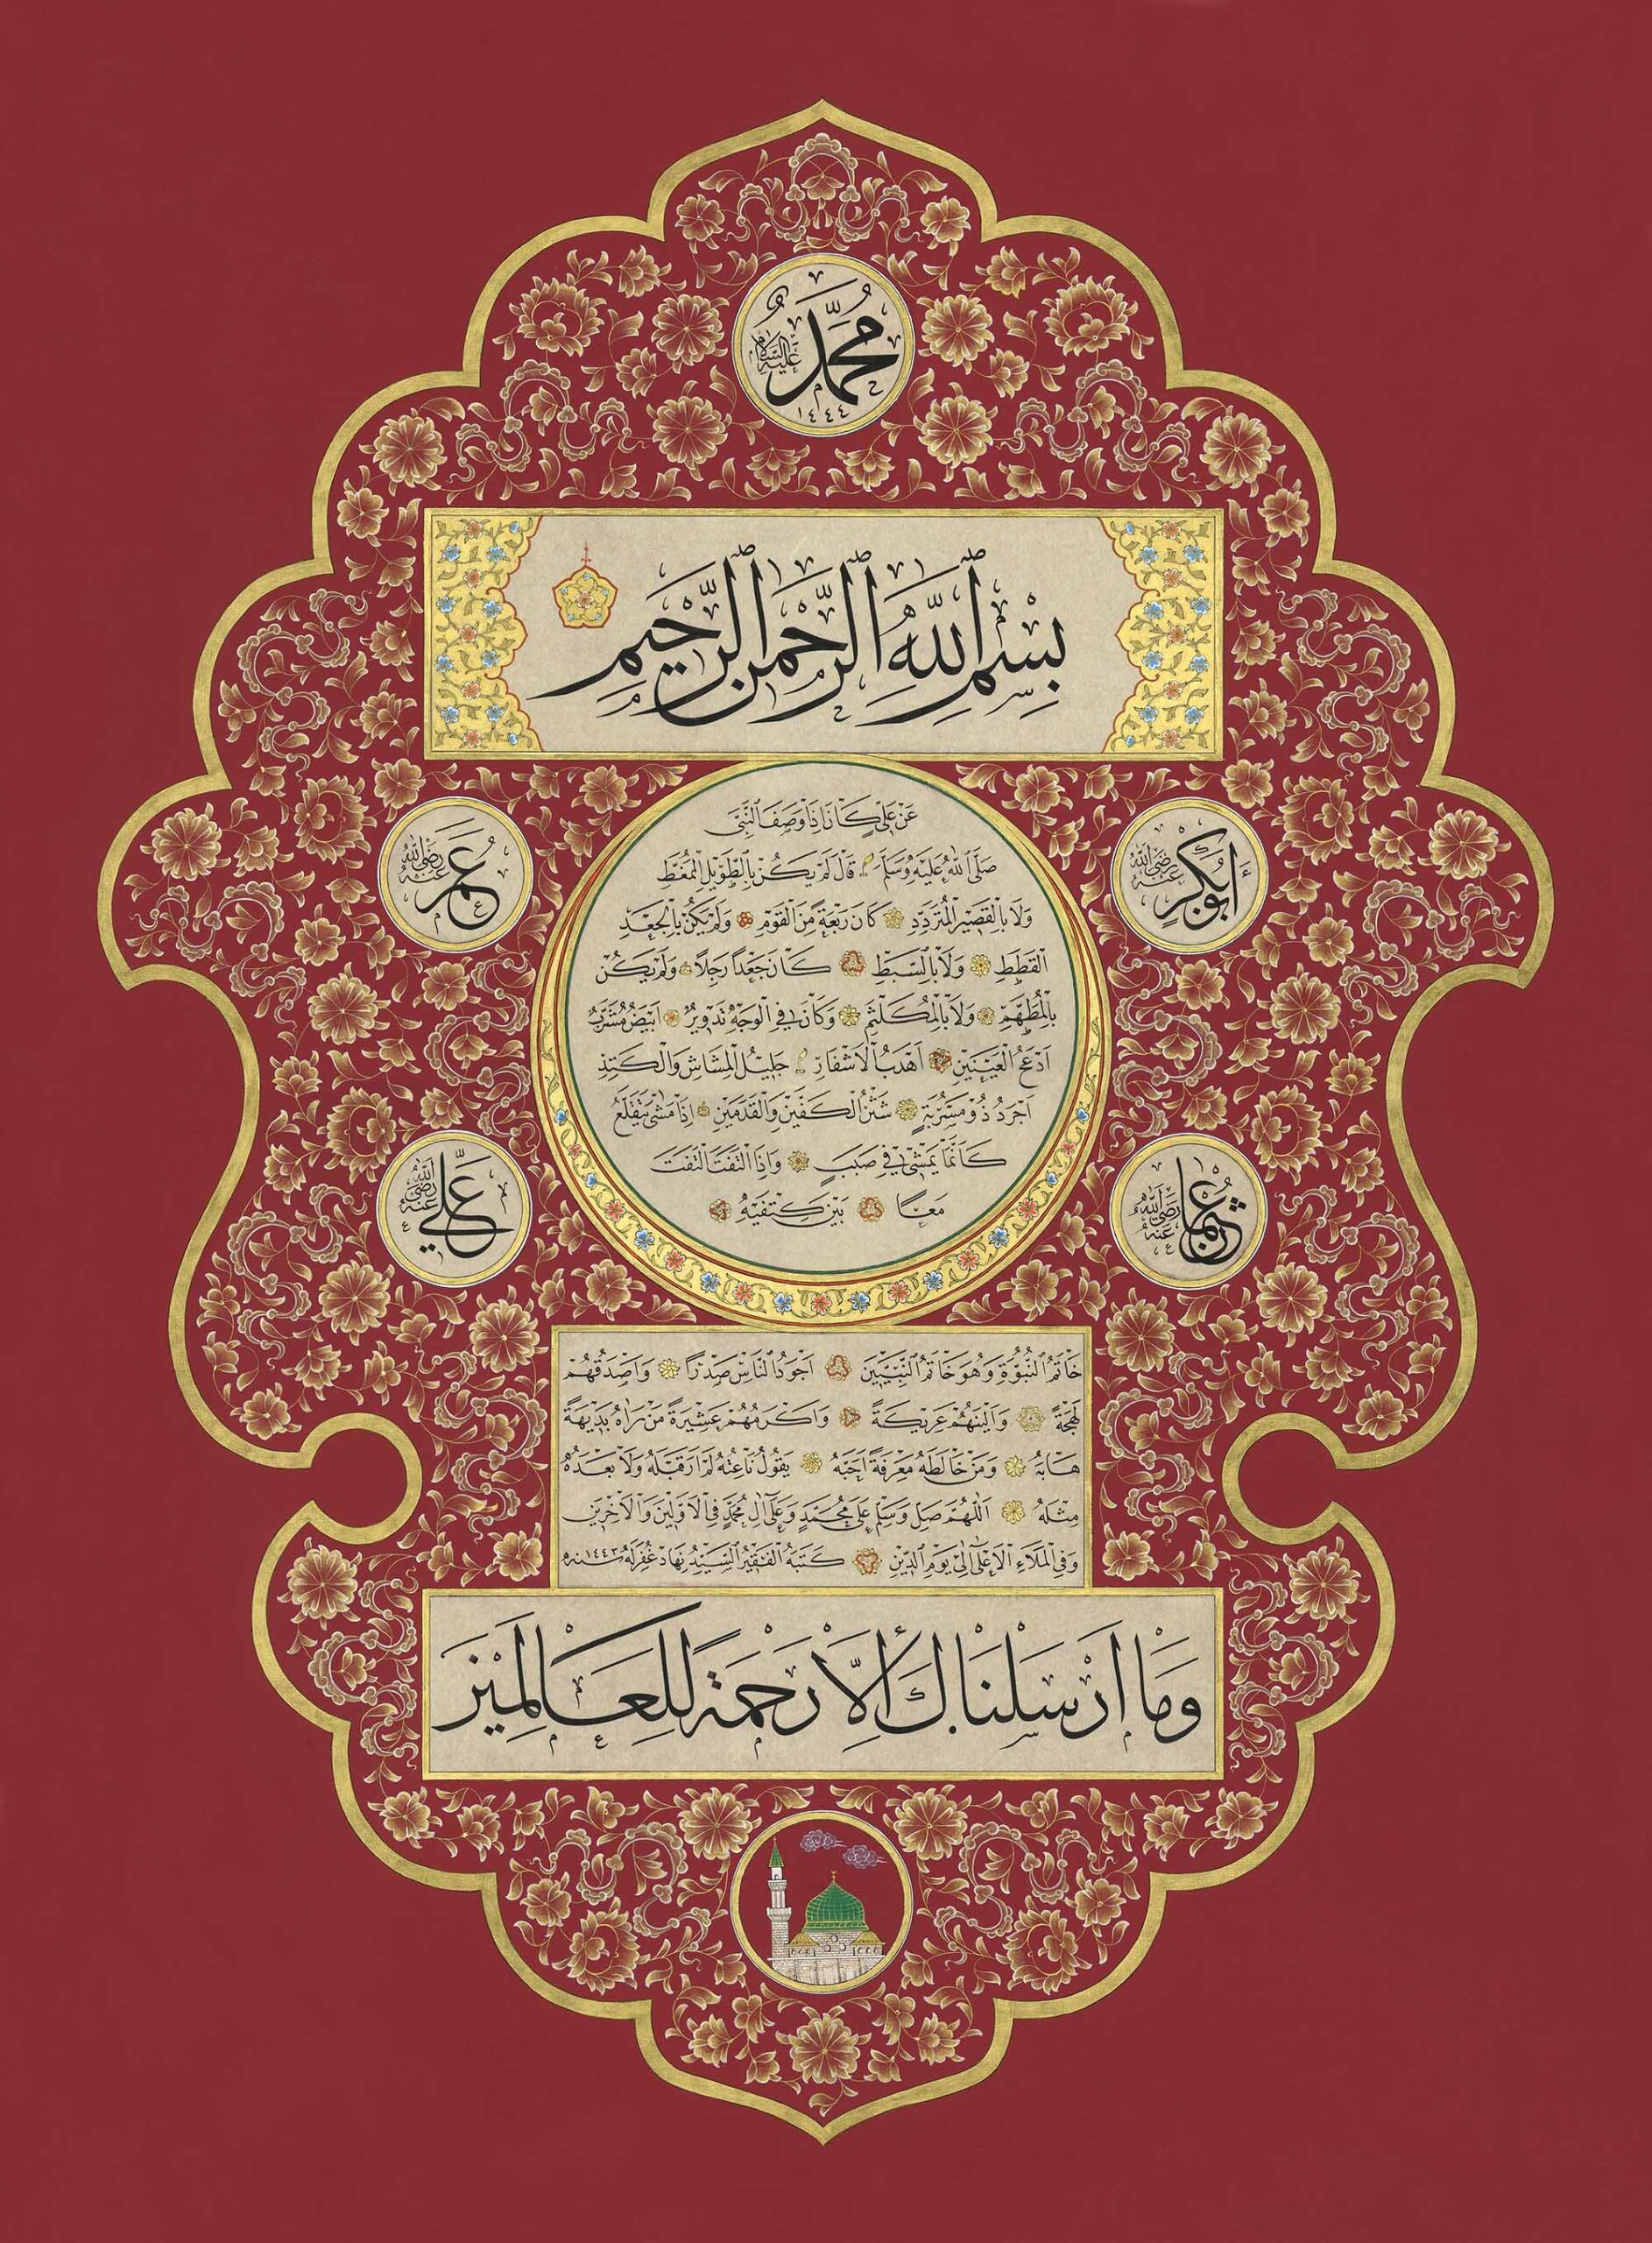 مُحَمَّد عَلَيْهِ السَّلَام
١٤٤٤
بِسْمِ ٱللَّهِ ٱلرَّحْمَٰنِ ٱلرَّحِيمِ
أَبُوبَكْر رَضِيَ اللّٰهُ عَنْهُ
عُمَر رَضِيَ اللّٰهُ عَنْهُ
عَنْ عَلِىٍّ كَانَ إِذَا وَصَفَ النَّبِىَّ
صَلَّى اللّٰهُ عَلَيْهِ وَسَلَّمَ قَالَ لَمْ يَكُنْ بِالطَّوِيلِ الْمُمَّغِطِ
وَلَا بِالْقَصِيرِ الْمُتَرَدِّدِ كَانَ رَبْعَةً مِنَ الْقَوْمِ وَلَمْ يَكُنْ بِالْجَعْدِ
الْقَطَطِ وَلَا بِالسَّبِطِ كَانَ جَعْدًا رَجِلًا وَلَمْ يَكُنْ
بِالْمُطَهَّمِ وَلَا بِالْمُكَلْثَمِ وَكَانَ فِي الْوَجْهِ تَدْوِيرٌ اَبْيَضُ مُشْرَبٌ
اَدْعَجُ الْعَيْنَيْنِ اَهْدَبُ الْاَشْفَارِ جَلِيلُ الْمُشَاشِ وَالْكَتَدِ
اَجْرَدُ ذُو مَسْرُبَةٍ شَثْنُ الْكَفَّيْنِ وَالْقَدَمَيْنِ اِذَا مَشَى يَتَقَلَّعُ
كَاَنَّمَا يَمْشِي فِي صَبَبٍ وَاِذَا الْتَفَتَ الْتَفَتَ
مَعًا بَيْنَ كَتِفَيْهِ
عُثْمَان رَضِيَ اللّٰهُ عَنْهُ
عَلِي رَضِيَ اللّٰهُ عَنْهُ
خَاتَمُ النُّبُوَّةِ وَهُوَ خَاتَمُ النَّبِيِّينَ اَجْوَدُ النَّاسِ صَدْرًا وَاَصْدَقُهُمْ
لَهْجَةً وَاَلْيَنُهُمْ عَرِيكَةً وَاَكْرَمُهُمْ عَشِيرَةً مَنْ رَاٰهُ بَدِيهَةً
هَابَهُ وَمَنْ خَالَطَهُ مَعْرِفَةً اَحَبَّهُ يَقُولُ نَاعِتُهُ لَمْ اَرَ قَبْلَهُ وَلَا بَعْدَهُ
مِثْلَهُ اَللّٰهُمَّ صَلِّ وَسَلِّمْ عَلَى مُحَمَّدٍ وَعَلَى اٰلِ مُحَمَّدٍ فِي الْاَوَّلِينَ وَالْاٰخِرِينَ
وَفِي الْمَلَاءِ الْاَعْلَى اِلَى يَوْمِ الدِّينِ كَتَبَهُ الْفَقِيرُ السَّيِّدُ نِهَاد غُفِرَ لَهُ سنه ١٤٤٣
وَمَا اَرْسَلْنَاكَ إِلَّا رَحْمَةً لِلْعَالَمِينَ